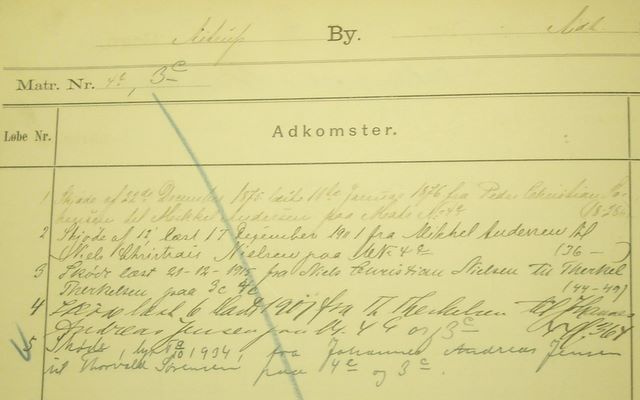 Astrup By.
Matr. Nr. 4c, 3c
Løbe Nr. Adkomster.
1 Skjøde af 22de December 1875 læst 10de Januar 1876 fra Peder Christian
til Mikkel Andersen paa Matr. No 4c
2 Skjøde af 12, læst 17 December 1901 fra Mikkel Andersen til
Niels Christian Nielsen paa MN: 4c (136 —)
3 Skøde læst 21-12-1915 fra Niels Christian Nielsen til Therkel
Therkelsen paa 3c 4c (44-49)
4 Skøde læst 6 fra Th Therkelsen til Johannes
Andreas Jensen paa 4c og 3c
5 Skøde, lyst 1934, fra Johannes Andreas Jensen
til Thorvald Sørensen paa 4c og 3c.